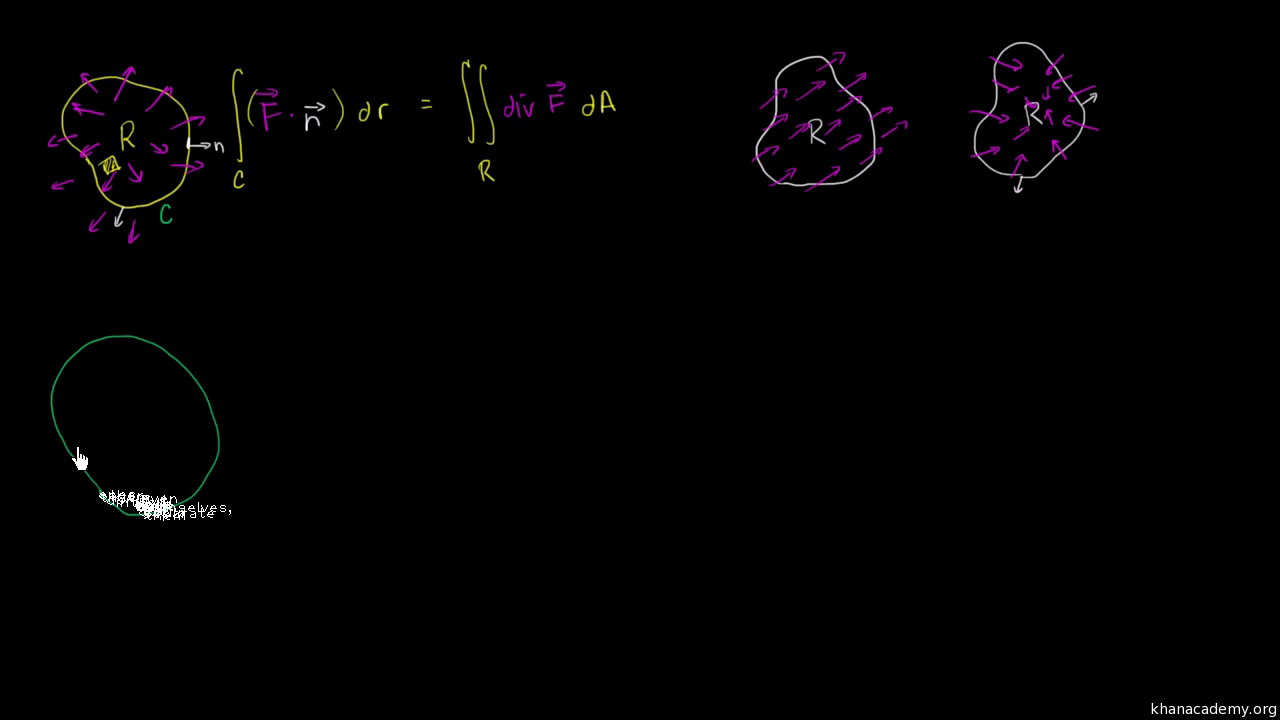 R
n
C
∫_C (F⃗ · n⃗) dr = ∬_R div F⃗ dA
R
R
selves,
khanacademy.org